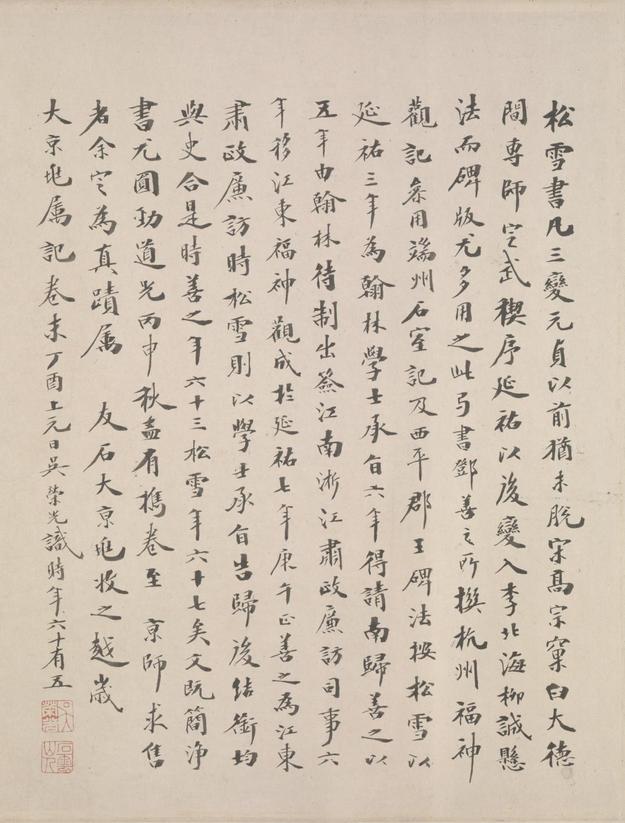 松雪書凡三變元貞以前猶未脫宋高宗窠臼大德
間專師定武禊序延祐以後變入李北海柳誠懸
法而碑版尤多用之此弓書鄧善之所撰杭州福神
觀記兼用端州石室記及西平郡王碑法按松雪以
延祐三年為翰林學士承旨六年得請南歸善之以
五年由翰林待制出簽江南浙江肅政廉訪司事六
年移江東福神觀成於延祐七年庚午正善之為江東
肅政廉訪時松雪則以學士承旨告歸後結銜均
與史合是時善之年六十三松雪年六十七矣文既簡淨
書尤圓勁道光丙申秋孟有攜卷至 京師求售
者余定為真蹟属 友石大京兆收之越歲
大京兆属記卷末丁酉上元日吳榮光識時年六十有五